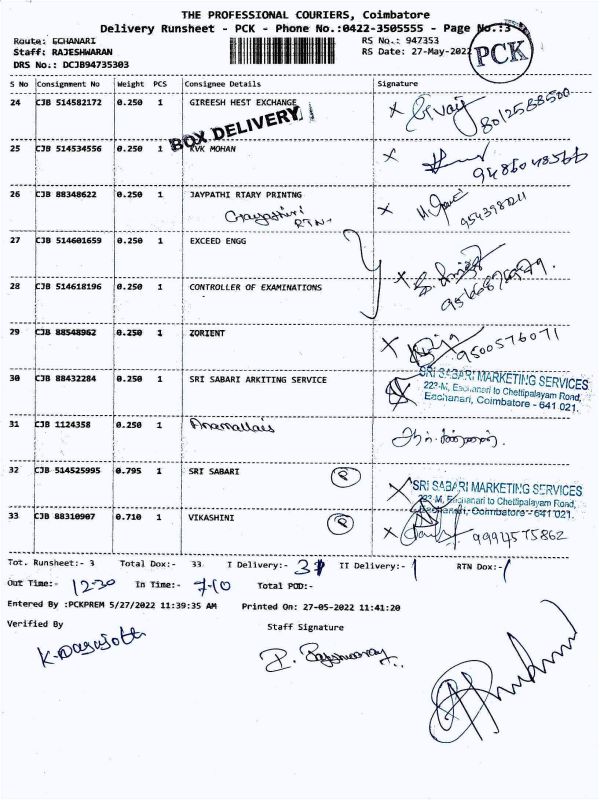 THE PROFESSIONAL COURIERS, Coimbatore
Delivery Runsheet - PCK - Phone No.:0422-3505555 - Page No.:3
Route: ECHANARI
RS No.: 947353
Staff: RAJESHWARAN
RS Date: 27-May-2022
PCK
DRS No.: DCJB94735303
S No Consignment No Weight PCS Consignee Details Signature
24 CJB 514582172 0.250 1 GIREESH HEST EXCHANGE
8012588500
BOX DELIVERY
25 CJB 514534556 0.250 1 KVK MOHAN
26 CJB 88348622 0.250 1 JAYPATHI RTARY PRINTNG
27 CJB 514601659 0.250 1 EXCEED ENGG
28 CJB 514618196 0.250 1 CONTROLLER OF EXAMINATIONS
29 CJB 88548962 0.250 1 ZORIENT
9500576071
30 CJB 88432284 0.250 1 SRI SABARI ARKITING SERVICE
SRI SABARI MARKETING SERVICES
223-M, Eachanari to Chettipalayam Road,
Eachanari, Coimbatore - 641 021.
31 CJB 1124358 0.250 1 Anamallais
32 CJB 514525995 0.795 1 SRI SABARI P
SRI SABARI MARKETING SERVICES
223-M, Eachanari to Chettipalayam Road,
Eachanari, Coimbatore - 641 021.
33 CJB 88310907 0.710 1 VIKASHINI P
9994575862
Tot. Runsheet:- 3 Total Dox:- 33 I Delivery:- II Delivery:- 1 RTN Dox:- 1
Out Time:- 12-30 In Time:- 7-10 Total POD:-
Entered By :PCKPREM 5/27/2022 11:39:35 AM Printed On: 27-05-2022 11:41:20
Verified By Staff Signature